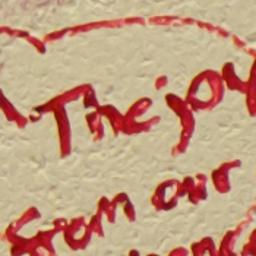 The joy
from our